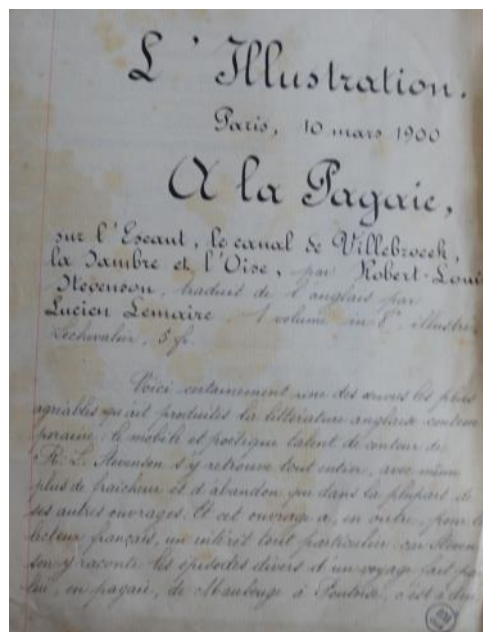 L'Illustration.
Paris, 10 mars 1900
A la Pagaie,
sur l'Escaut, le canal de Villebroeck,
la Sambre et l'Oise, par Robert-Louis
Stevenson, traduit de l'anglais par
Lucien Lemaire 1 volume in 8°, illustré
Lechevalier, 5 fr.
Voici certainement une des œuvres les plus
agréables qu'ait produites la littérature anglaise contem
poraine ; le mobile et poétique talent de conteur de
R. L. Stevenson s'y retrouve tout entier, avec même
plus de fraicheur et d'abandon que dans la plupart de
ses autres ouvrages. Et cet ouvrage a, en outre, pour le
lecteur français, un intérêt tout particulier car Steven
son y raconte les épisodes divers d'un voyage fait par
lui, en pagaie, de Maubeuge à Pontoise, c'est à dire